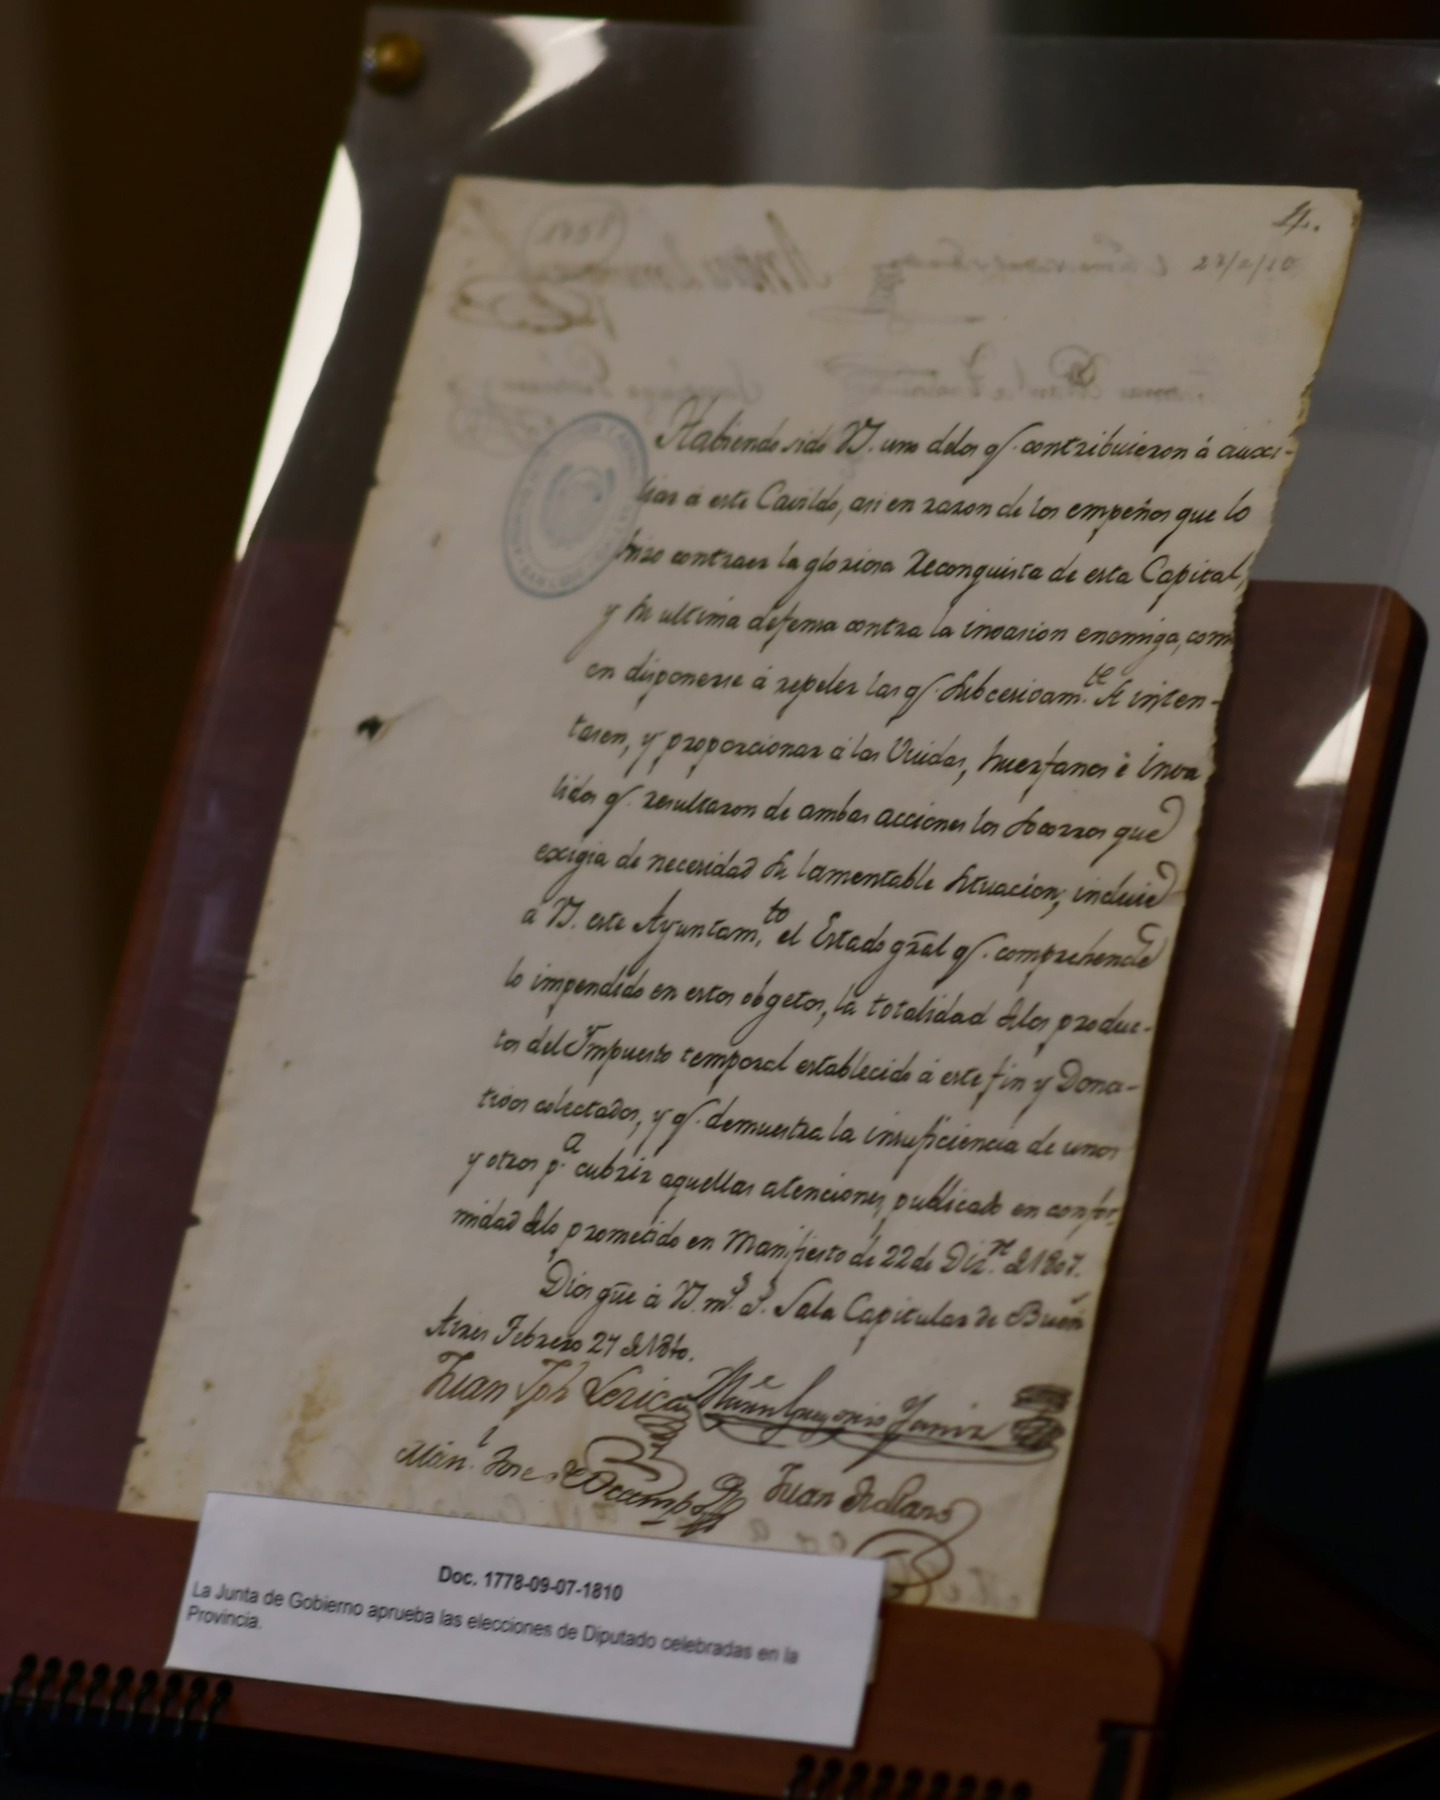 4.
Habiendo sido VS. uno delos q.e contribuieron á auxi-
liar á este Cavildo, asi en razon de los empeños que lo
hizo contraer la gloriosa Reconquista de esta Capital,
y su ultima defensa contra la invasion enemiga, com
en disponerse á repeler las q.e subcesivam.te se inten-
tasen, y proporcionar á las Viudas, huerfanos é Inva
lidos q.e resultaron de ambas acciones los socorros que
exigia de necesidad su lamentable situacion; incluie
á VS. este Ayuntam.to el Estado gral q.e comprehende
lo impendido en estos obgetos, la totalidad delos produc-
tos del Impuesto temporal establecido á este fin y Dona-
tivos colectados, y q.e demuestra la insuficiencia de unos
y otros p.a cubrir aquellas atenciones, publicado en confor
midad delo prometido en Manifiesto de 22 de Diz.re de 1807.
Dios gũe á VS. m.s a.s Sala Capitular de Buen
Aires Febrero 27 de 1810.
Juan Jph Lezica Mărtin Gregorio Yaniz
Man.l Jose de Ocampo Juan
Doc. 1778-09-07-1810
La Junta de Gobierno aprueba las elecciones de Diputado celebradas en la
Provincia.